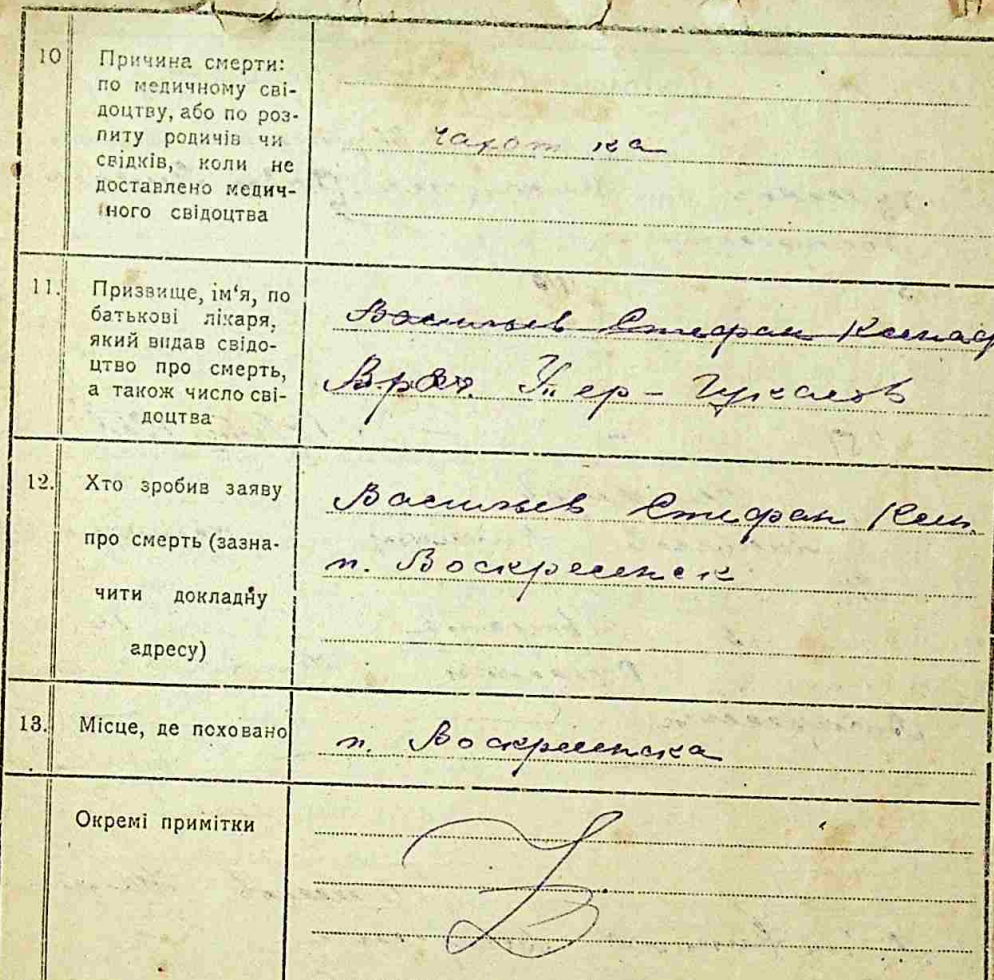 10
Причина смерти:
по медичному сві-
доцтву, або по роз-
питу родичів чи
свідків, коли не
доставлено медич-
ного свідоцтва
чахотка
11.
Призвище, ім'я, по
батькові лікаря,
який видав свідо-
цтво про смерть,
а також число сві-
доцтва
Васильев Стефан
Врач. Тер-
12.
Хто зробив заяву
про смерть (зазна-
чити докладну
адресу)
Васильев Стефан
п. Воскресенск
13.
Місце, де поховано
п. Воскресенска
Окремі примітки